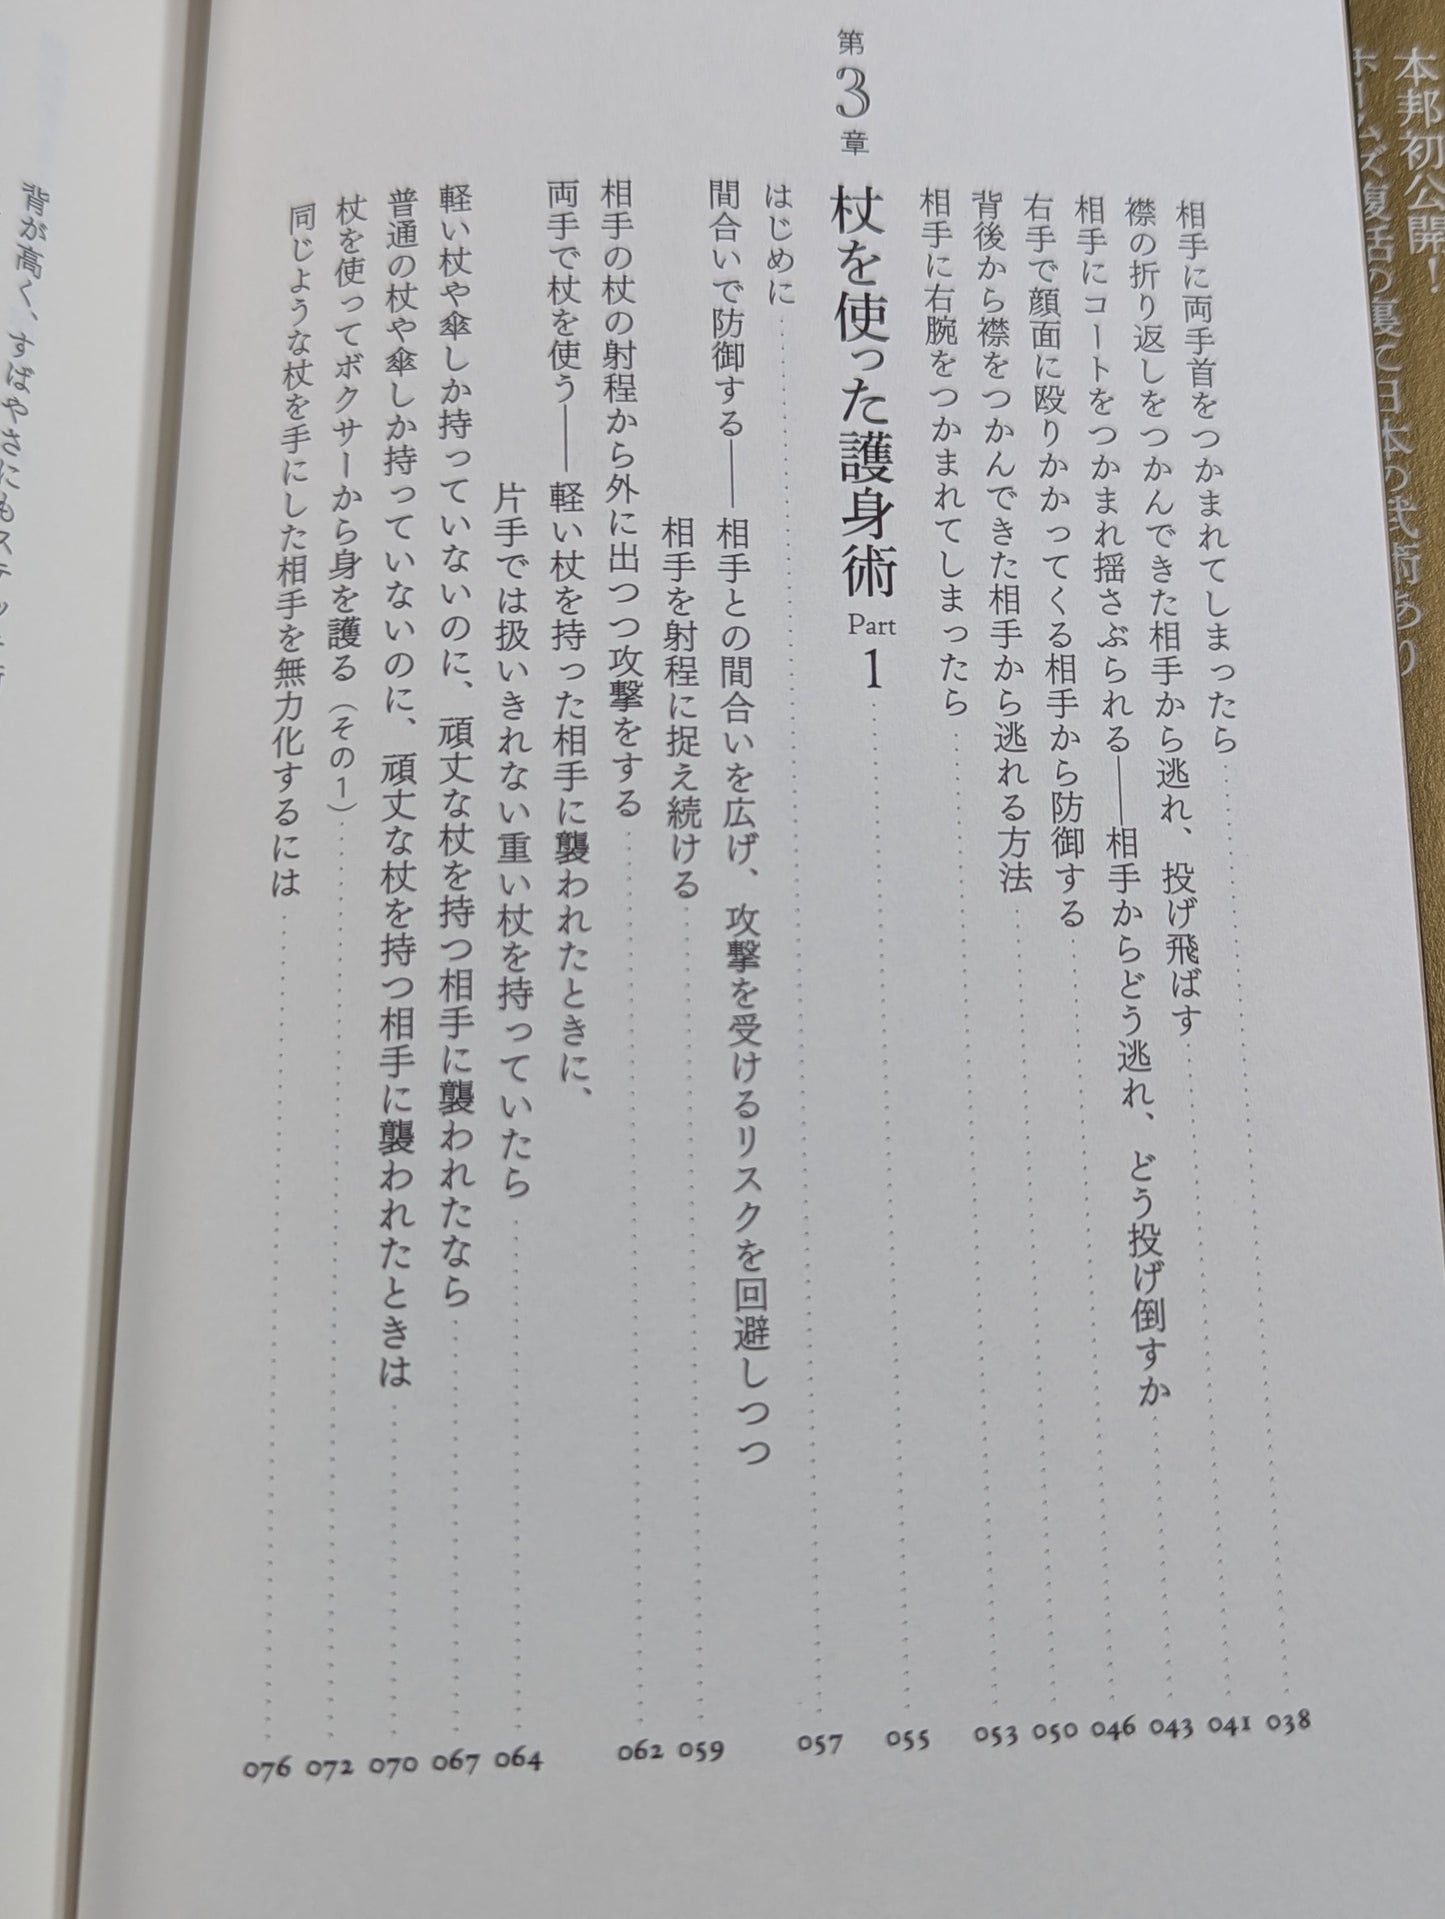 本邦初公開！
ホームズ復活の裏に日本の武術あり
相手に両手首をつかまれてしまったら 038
襟の折り返しをつかんできた相手から逃れ、投げ飛ばす 041
相手にコートをつかまれ揺さぶられる――相手からどう逃れ、どう投げ倒すか 043
右手で顔面に殴りかかってくる相手から防御する 046
背後から襟をつかんできた相手から逃れる方法 050
相手に右腕をつかまれてしまったら 053
第3章 杖を使った護身術 Part 1 055
はじめに 057
間合いで防御する――相手との間合いを広げ、攻撃を受けるリスクを回避しつつ
相手を射程に捉え続ける 059
相手の杖の射程から外に出つつ攻撃をする 062
両手で杖を使う――軽い杖を持った相手に襲われたときに、
片手では扱いきれない重い杖を持っていたら 064
軽い杖や傘しか持っていないのに、頑丈な杖を持つ相手に襲われたなら 067
普通の杖や傘しか持っていないのに、頑丈な杖を持つ相手に襲われたときは 070
杖を使ってボクサーから身を護る（その1） 072
同じような杖を手にした相手を無力化するには 076
背が高く、すばやさにも